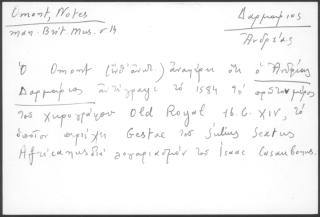 Omont, Notes
man. Brit. Mus. σ 14
Δαρμάριος
Ἀνδρέας
Ὁ Omont ἀναφέρει ὅτι ὁ Ἀνδρέας
Δαρμάριος ἀντέγραψε τὸ 1584 τὸ
τοῦ χειρογράφου Old Royal 16. C. XIV, τὸ
ὁποῖον περιέχει Gestae τοῦ Julius Sextus
Africanus διὰ λογαριασμόν τοῦ Isaac Casaubonus.